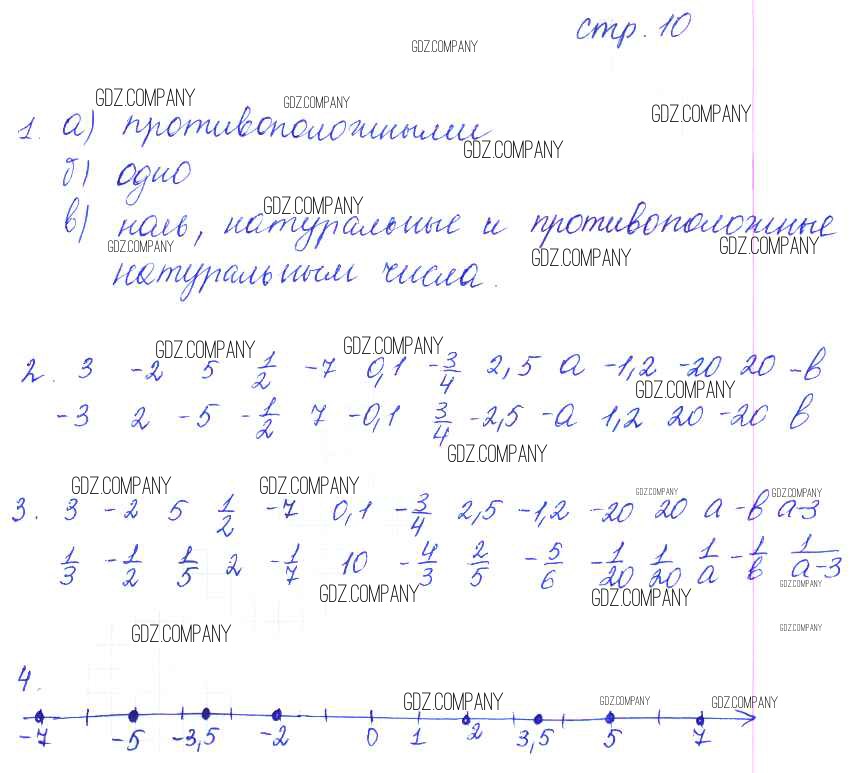 стр. 10
GDZ.COMPANY
GDZ.COMPANY GDZ.COMPANY GDZ.COMPANY
1. а) противоположными
GDZ.COMPANY
б) одно
GDZ.COMPANY
в) ноль, натуральные и противоположные
GDZ.COMPANY GDZ.COMPANY GDZ.COMPANY
натуральным числа.
GDZ.COMPANY GDZ.COMPANY
2. 3 -2 5 1/2 -7 0,1 -3/4 2,5 a -1,2 -20 20 -в
GDZ.COMPANY
-3 2 -5 -1/2 7 -0,1 3/4 -2,5 -a 1,2 20 -20 в
GDZ.COMPANY
GDZ.COMPANY GDZ.COMPANY GDZ.COMPANY GDZ.COMPANY
3. 3 -2 5 1/2 -7 0,1 -3/4 2,5 -1,2 -20 20 a -в a-3
1/3 -1/2 1/5 2 -1/7 10 -4/3 2/5 -5/6 -1/20 1/20 1/a -1/в 1/a-3
GDZ.COMPANY GDZ.COMPANY GDZ.COMPANY
GDZ.COMPANY GDZ.COMPANY
4.
GDZ.COMPANY GDZ.COMPANY GDZ.COMPANY
-7 -5 -3,5 -2 0 1 2 3,5 5 7